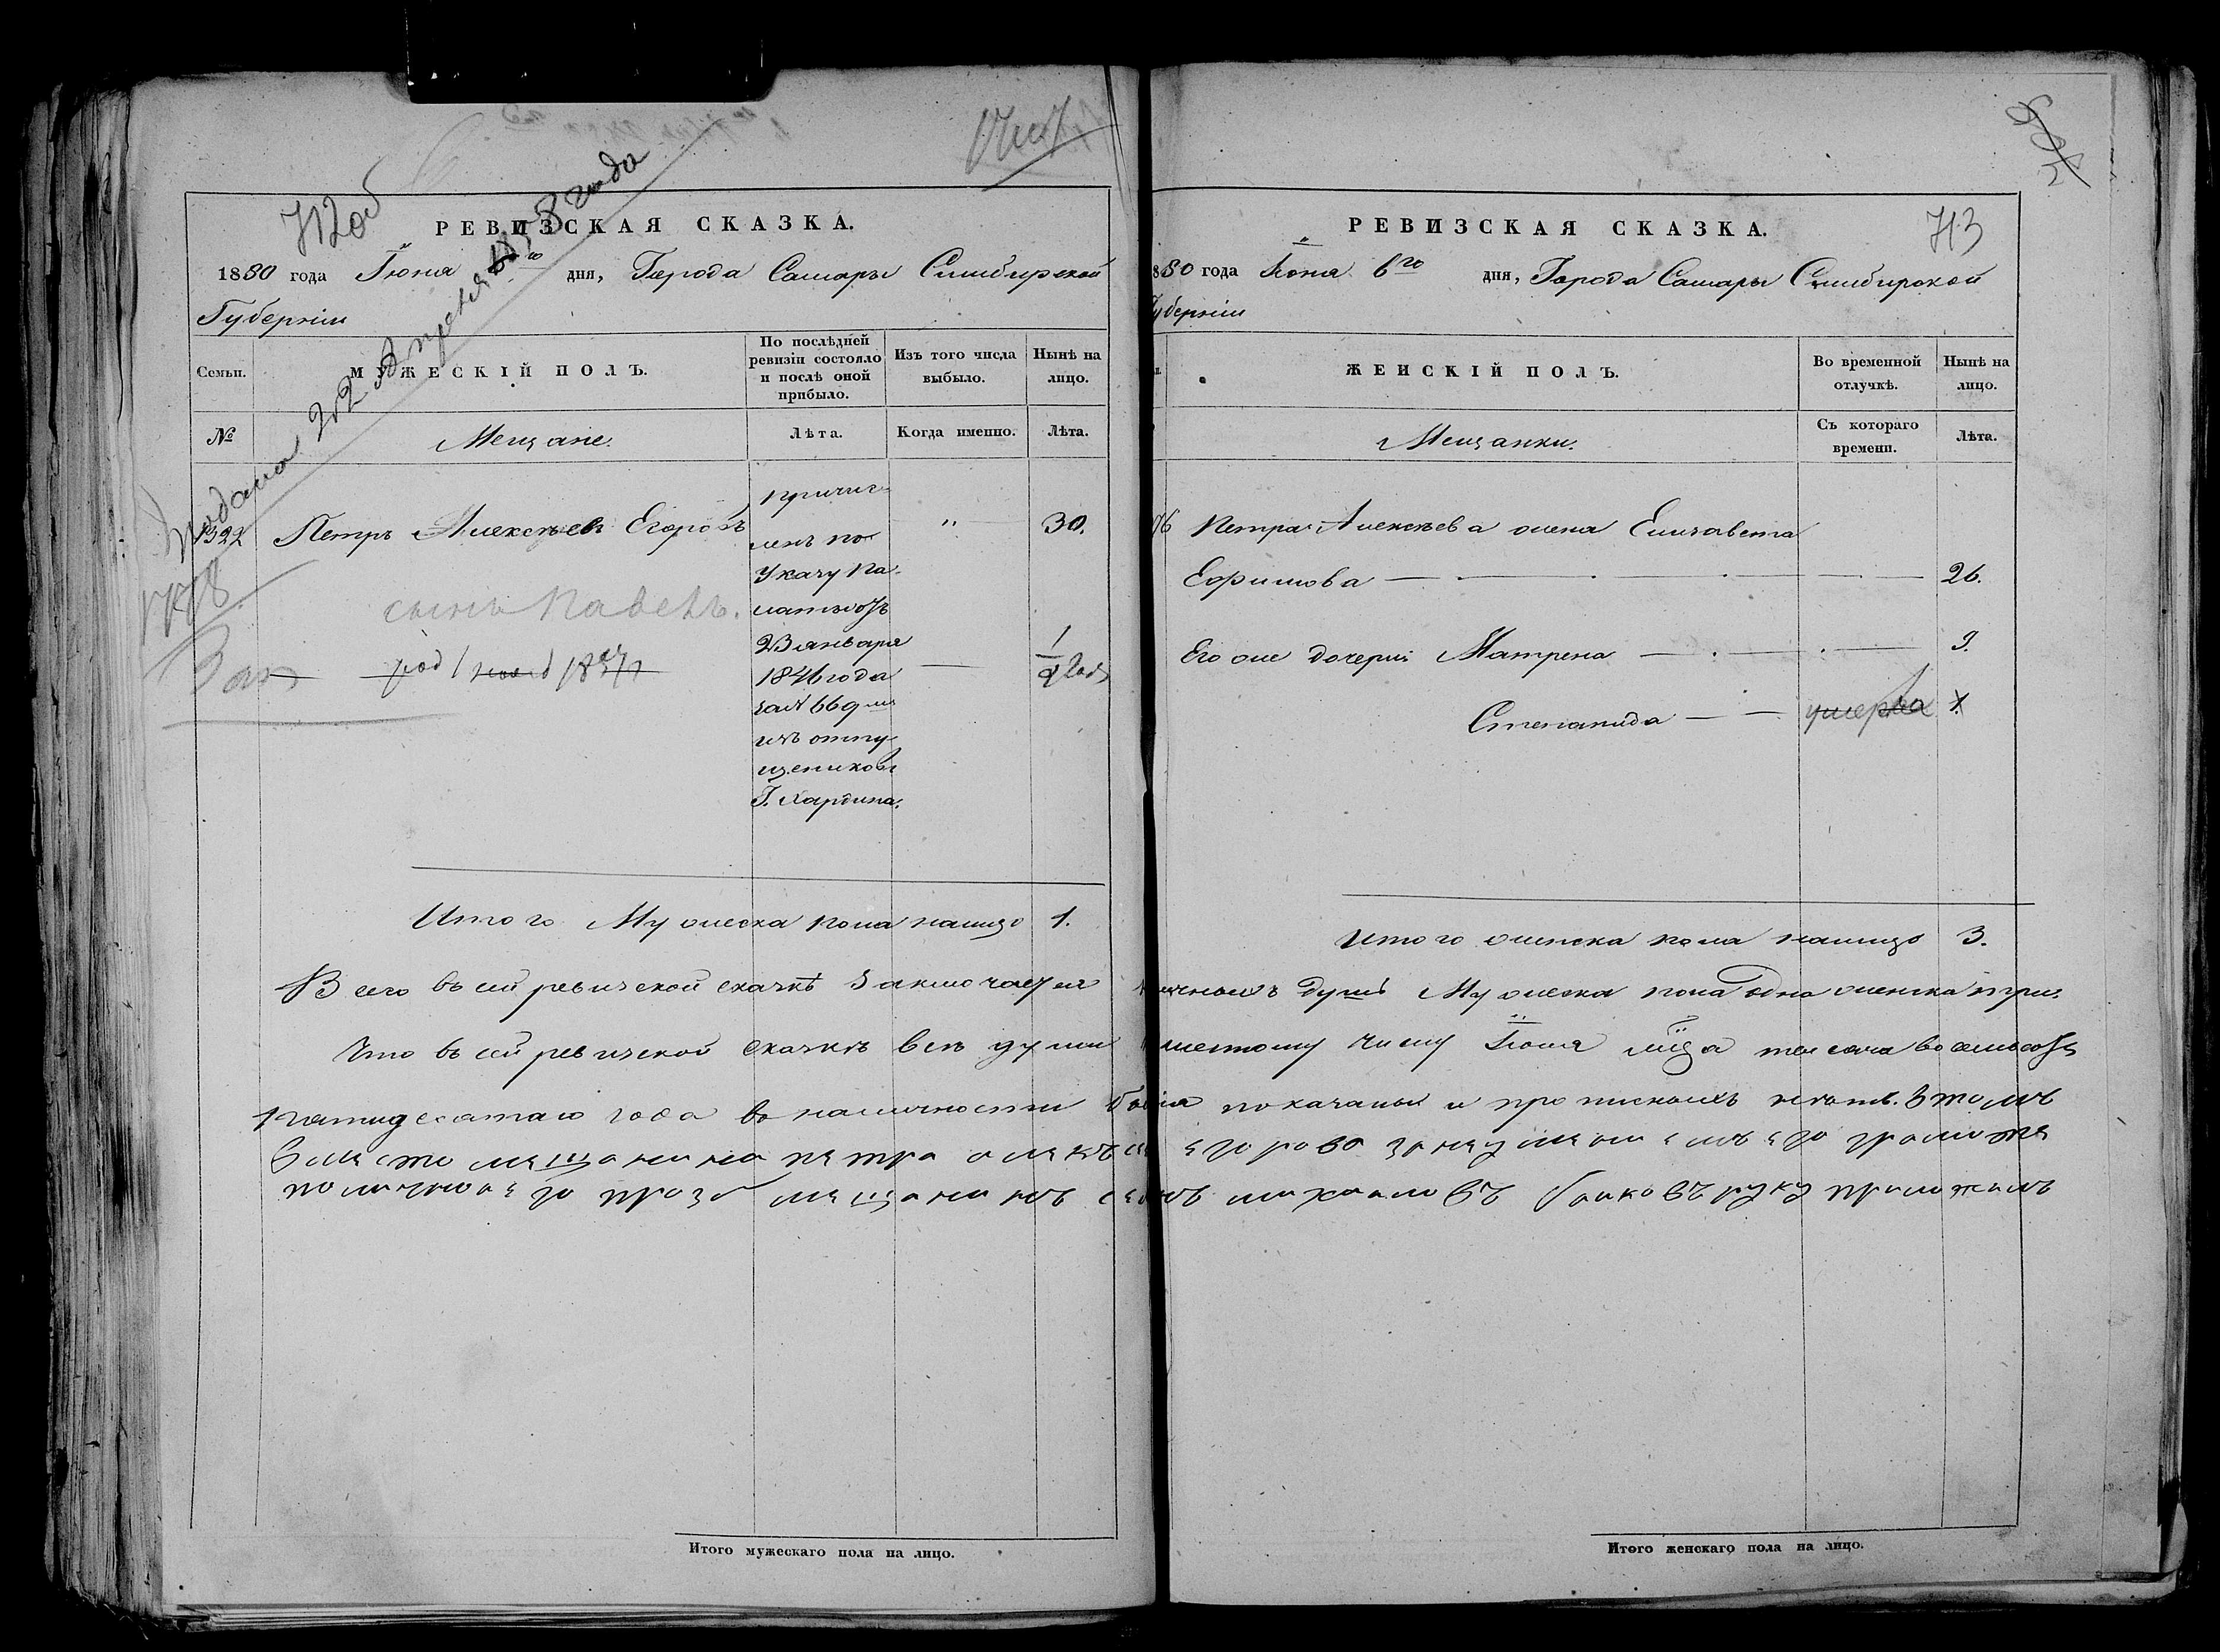 712об
РЕВИЗСКАЯ СКАЗКА.
1850 года Іюня 6го дня, Города Самары Симбирской
Губерніи
Подана года
Семьи.
МУЖЕСКІЙ ПОЛЪ.
По послѣдней ревизіи состояло и послѣ оной прибыло.
Изъ того числа выбыло.
Нынѣ на лицо.
№
Мещане.
Лѣта.
Когда именно.
Лѣта.
1322
Петръ Алексѣевъ Егоровъ
причис-
ленъ по
Указу Па-
латы отъ
23 января
1846 года
за № 669 мъ
изъ отпу-
щениковъ
Г. Хардина.
"
30.
сынъ Павелъ.
род
Итого Мужеска пола налицо 1.
РЕВИЗСКАЯ СКАЗКА.
713
850 года Іюня 6го дня, Города Самары Симбирской
Губерніи
ЖЕНСКІЙ ПОЛЪ.
Во временной отлучкѣ.
Нынѣ на лицо.
Мещанки.
Съ котораго времени.
Лѣта.
76 Петра Алексѣева жена Елизавета
Ефимова 26.
Его же дочери: Матрена 3.
Степанида умерла 1.
Итого женска пола налицо 3.
Всего въ сей ревизской сказкѣ заключается наличныхъ душъ Мужеска пола одна женска три.
Что въ сей ревизской сказкѣ всѣ души шестому числу Іюня мца тысяча восемьсотъ
пятидесятаго года въ наличности показаны и прописныхъ нѣтъ. Въ томъ
вместо мещанина петра алексеева егорова за неумениемъ его грамоте
по личной его прозбе мещанинъ михаиловъ руку приложилъ
Итого мужескаго пола на лицо.
Итого женскаго пола на лицо.